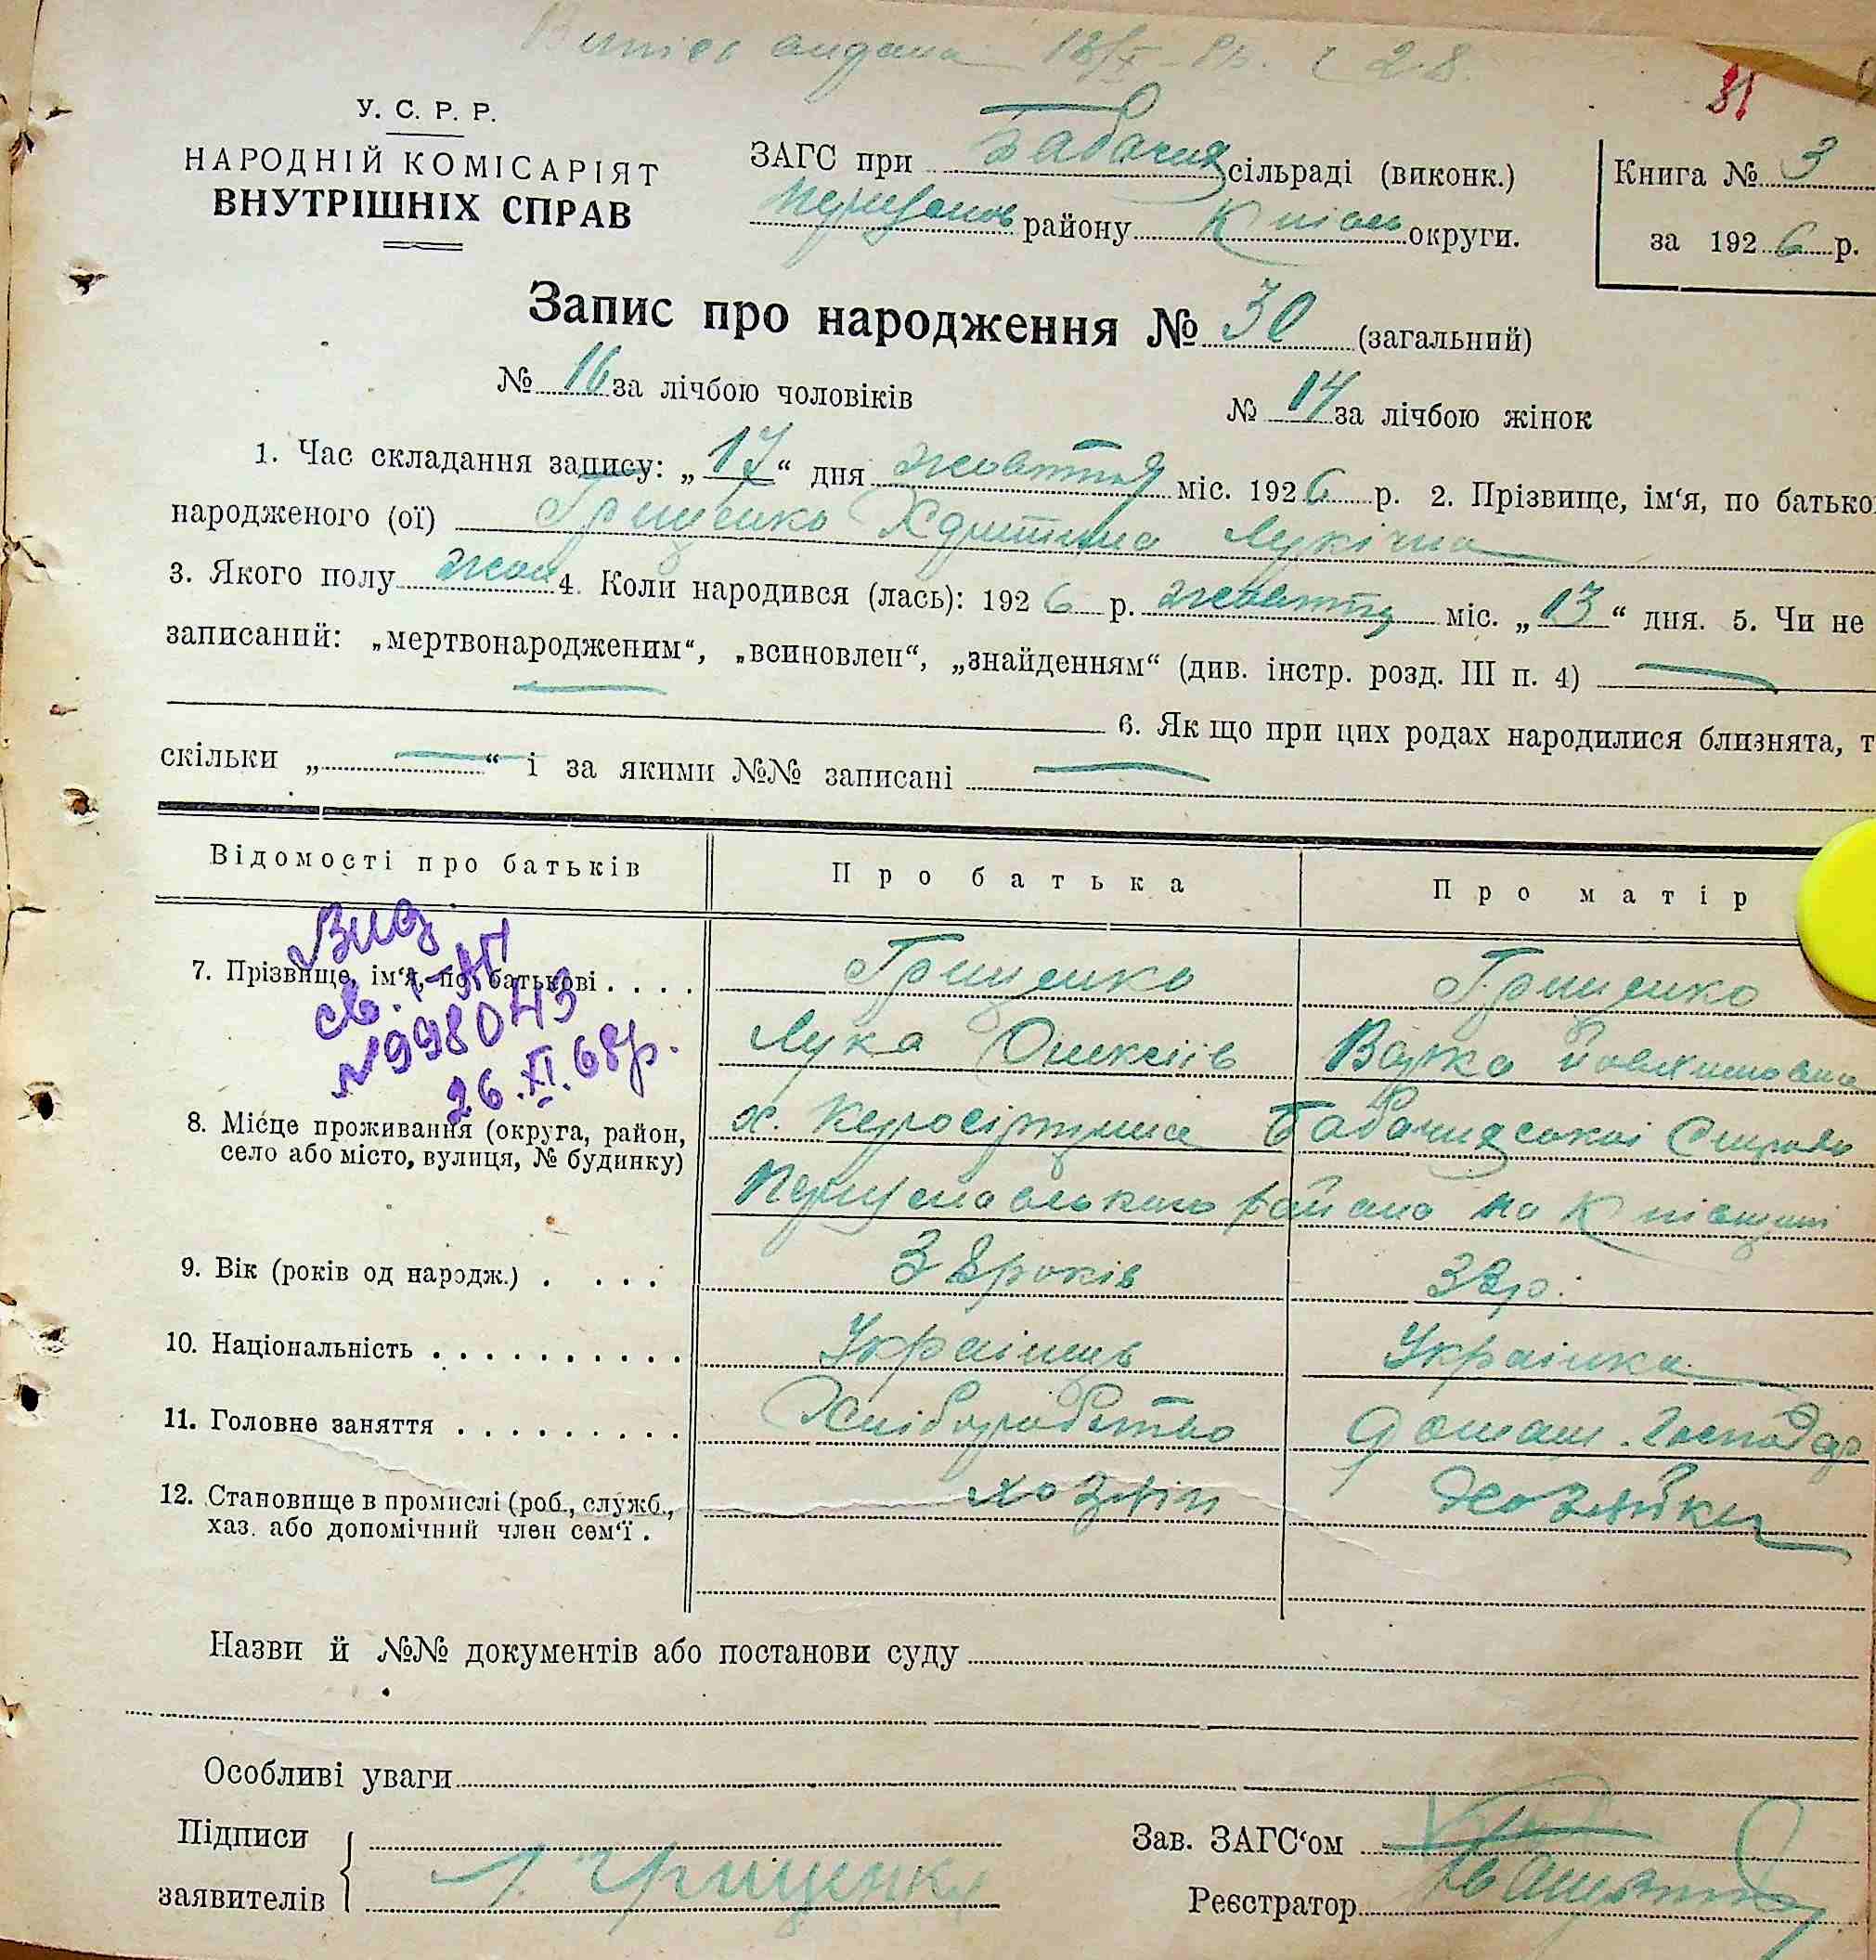 У. С. Р. Р.
НАРОДНІЙ КОМІСАРІЯТ
ВНУТРІШНІХ СПРАВ
ЗАГС при Бабачия сільраді (виконк.)
району округи.
Книга № 3
за 1926 р.
81
Запис про народження № 30 (загальний)
№ 16 за лічбою чоловіків № 14 за лічбою жінок
1. Час складання запису: „17“ дня жовтня міс. 1926 р. 2. Прізвище, ім‘я, по батько
народженого (ої) Грищенко Христина Лукічна
3. Якого полу жін 4. Коли народився (лась): 1926 р. жовтня міс. „13“ дня. 5. Чи не
записаний: „мертвонародженим“, „всиновлен“, „знайденням“ (див. інстр. розд. III п. 4) —
— 6. Як що при цих родах народилися близнята, т
скільки „—“ і за якими №№ записані —
Відомості про батьків Про батька Про матір
Вид
св. І-
№998043
26.XI.68р.
7. Прізвище, ім‘я, по батькові . . . . Грищенко Грищенко
Лука Олексіїв
8. Місце проживання (округа, район,
село або місто, вулиця, № будинку)
х. Сільради
району на Київщині
9. Вік (років од народж.) . . . . 38 років 38 р.
10. Національність . . . . . . . . . . Українець Українка
11. Головне заняття . . . . . . . . . Хліборобство домаш. господар
12. Становище в промислі (роб., служб., хозяїн хозяйка
хаз. або допомічний член сем‘ї .
Назви й №№ документів або постанови суду
Особливі уваги
Підписи
заявителів Л. Грищенко
Зав. ЗАГС‘ом
Реєстратор